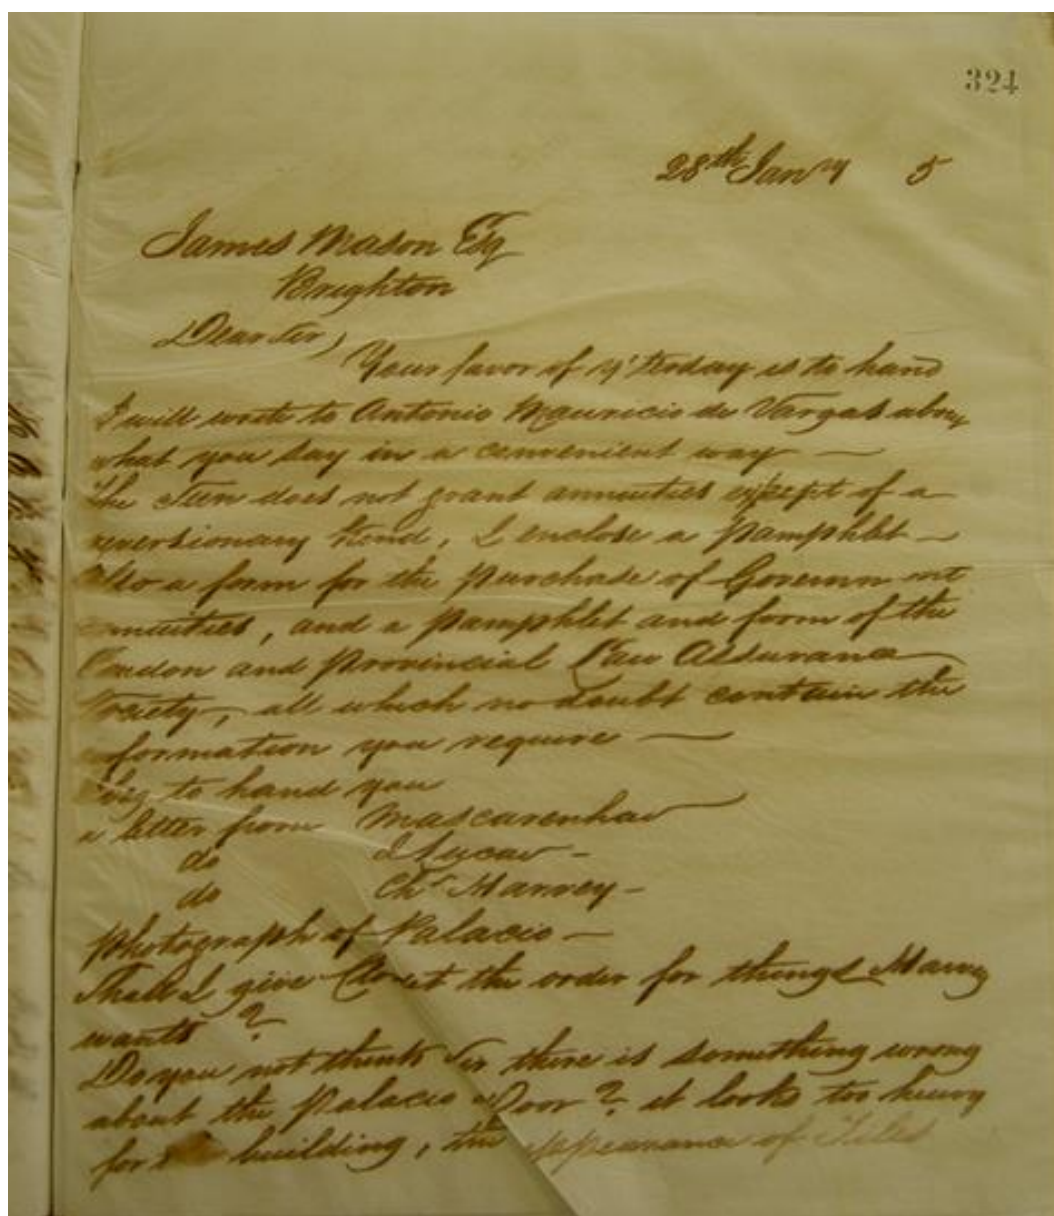 324
28th Jany 5
James Mason Esq
Brighton
Dear Sir,
Your favor of y'terday is to hand
I will write to Antonio Mauricio de Vargas abou
what you say in a convenient way —
the does not grant annuities except of a
versionary kind, I enclose a Pamphlet —
also a form for the purchase of Government
nnuities, and a pamphlet and form of the
London and Provincial Law Assurance
Society, all which no doubt contain the
formation you require —
beg to hand you
a letter from Mascarenhas
do
do Chs Harvey —
photograph of Palacio —
Shall I give the order for things Harvey
wants ?
Do you not think Sir there is something wrong
about the Palacio ? it looks too heavy
for building, the appearance of Tiles